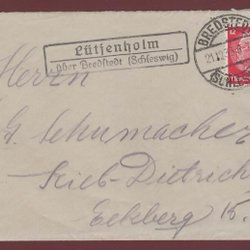 Lütjenholm
über Bredstedt (Schleswig)
BREDSTE
21.12.3
Herrn
G. Schumacher
Kiel-Dietrich
Eckberg 15.